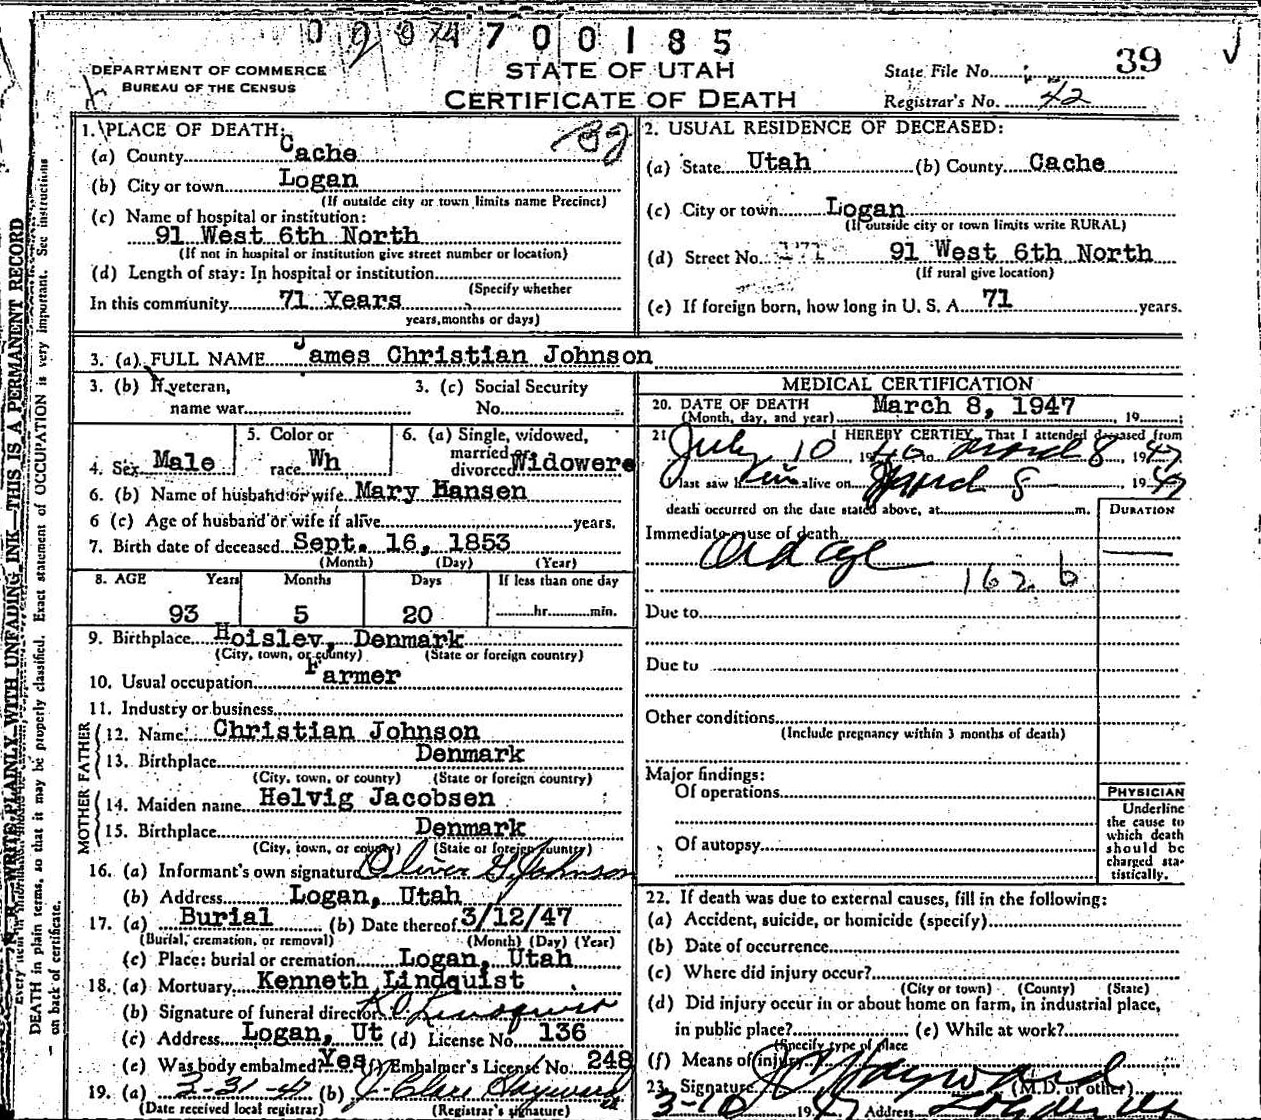 0 9 0 4 7 0 0 1 8 5
DEPARTMENT OF COMMERCE
BUREAU OF THE CENSUS
STATE OF UTAH
CERTIFICATE OF DEATH
State File No. 39
Registrar's No. 42
1. PLACE OF DEATH:
(a) County Cache
(b) City or town Logan
(If outside city or town limits name Precinct)
(c) Name of hospital or institution:
91 West 6th North
(If not in hospital or institution give street number or location)
(d) Length of stay: In hospital or institution
(Specify whether
In this community 71 Years
years, months or days)
2. USUAL RESIDENCE OF DECEASED:
(a) State Utah (b) County Cache
(c) City or town Logan
(If outside city or town limits write RURAL)
(d) Street No. 171 91 West 6th North
(If rural give location)
(e) If foreign born, how long in U. S. A. 71 years.
3. (a) FULL NAME James Christian Johnson
3. (b) If veteran,
name war
3. (c) Social Security
No.
4. Sex Male
5. Color or
race Wh
6. (a) Single, widowed,
married
divorced Widowere
6. (b) Name of husband or wife Mary Hansen
6 (c) Age of husband or wife if alive years.
7. Birth date of deceased Sept. 16, 1853
(Month) (Day) (Year)
8. AGE Years Months Days If less than one day
93 5 20 hr. min.
9. Birthplace Hoislev, Denmark
(City, town, or county) (State or foreign country)
10. Usual occupation Farmer
11. Industry or business
FATHER
12. Name Christian Johnson
13. Birthplace Denmark
(City, town, or county) (State or foreign country)
MOTHER
14. Maiden name Helvig Jacobsen
15. Birthplace Denmark
(City, town, or county) (State or foreign country)
16. (a) Informant's own signature Oliver G. Johnson
(b) Address Logan, Utah
17. (a) Burial (b) Date thereof 3/12/47
(Burial, cremation, or removal) (Month) (Day) (Year)
(c) Place: burial or cremation Logan, Utah
18. (a) Mortuary Kenneth Lindquist
(b) Signature of funeral director K O Lindquist
(c) Address Logan, Ut (d) License No. 136
(e) Was body embalmed? Yes (f) Embalmer's License No. 248
19. (a) 3-31-47 (b) J. Clare Hayward
(Date received local registrar) (Registrar's signature)
MEDICAL CERTIFICATION
20. DATE OF DEATH March 8, 1947
(Month, day, and year) 19 ;
21 I HEREBY CERTIFY, That I attended deceased from
July 10, 1946 to March 8, 1947
I last saw him alive on March 8, 1947
death occurred on the date stated above, at m. DURATION
Immediate cause of death
Old age
162. b
Due to
Due to
Other conditions
(Include pregnancy within 3 months of death)
Major findings:
Of operations
Of autopsy
PHYSICIAN
Underline
the cause to
which death
should be
charged sta-
tistically.
22. If death was due to external causes, fill in the following:
(a) Accident, suicide, or homicide (specify)
(b) Date of occurrence
(c) Where did injury occur?
(City or town) (County) (State)
(d) Did injury occur in or about home on farm, in industrial place,
in public place? (e) While at work?
(Specify type of place
(f) Means of injury
23. Signature Hayward (M.D. or other)
3-10 1947 Address
WRITE PLAINLY WITH UNFADING INK—THIS IS A PERMANENT RECORD
Every item
DEATH in plain terms, so that it may be properly classified. Exact statement of OCCUPATION is very important. See instructions
on back of certificate.